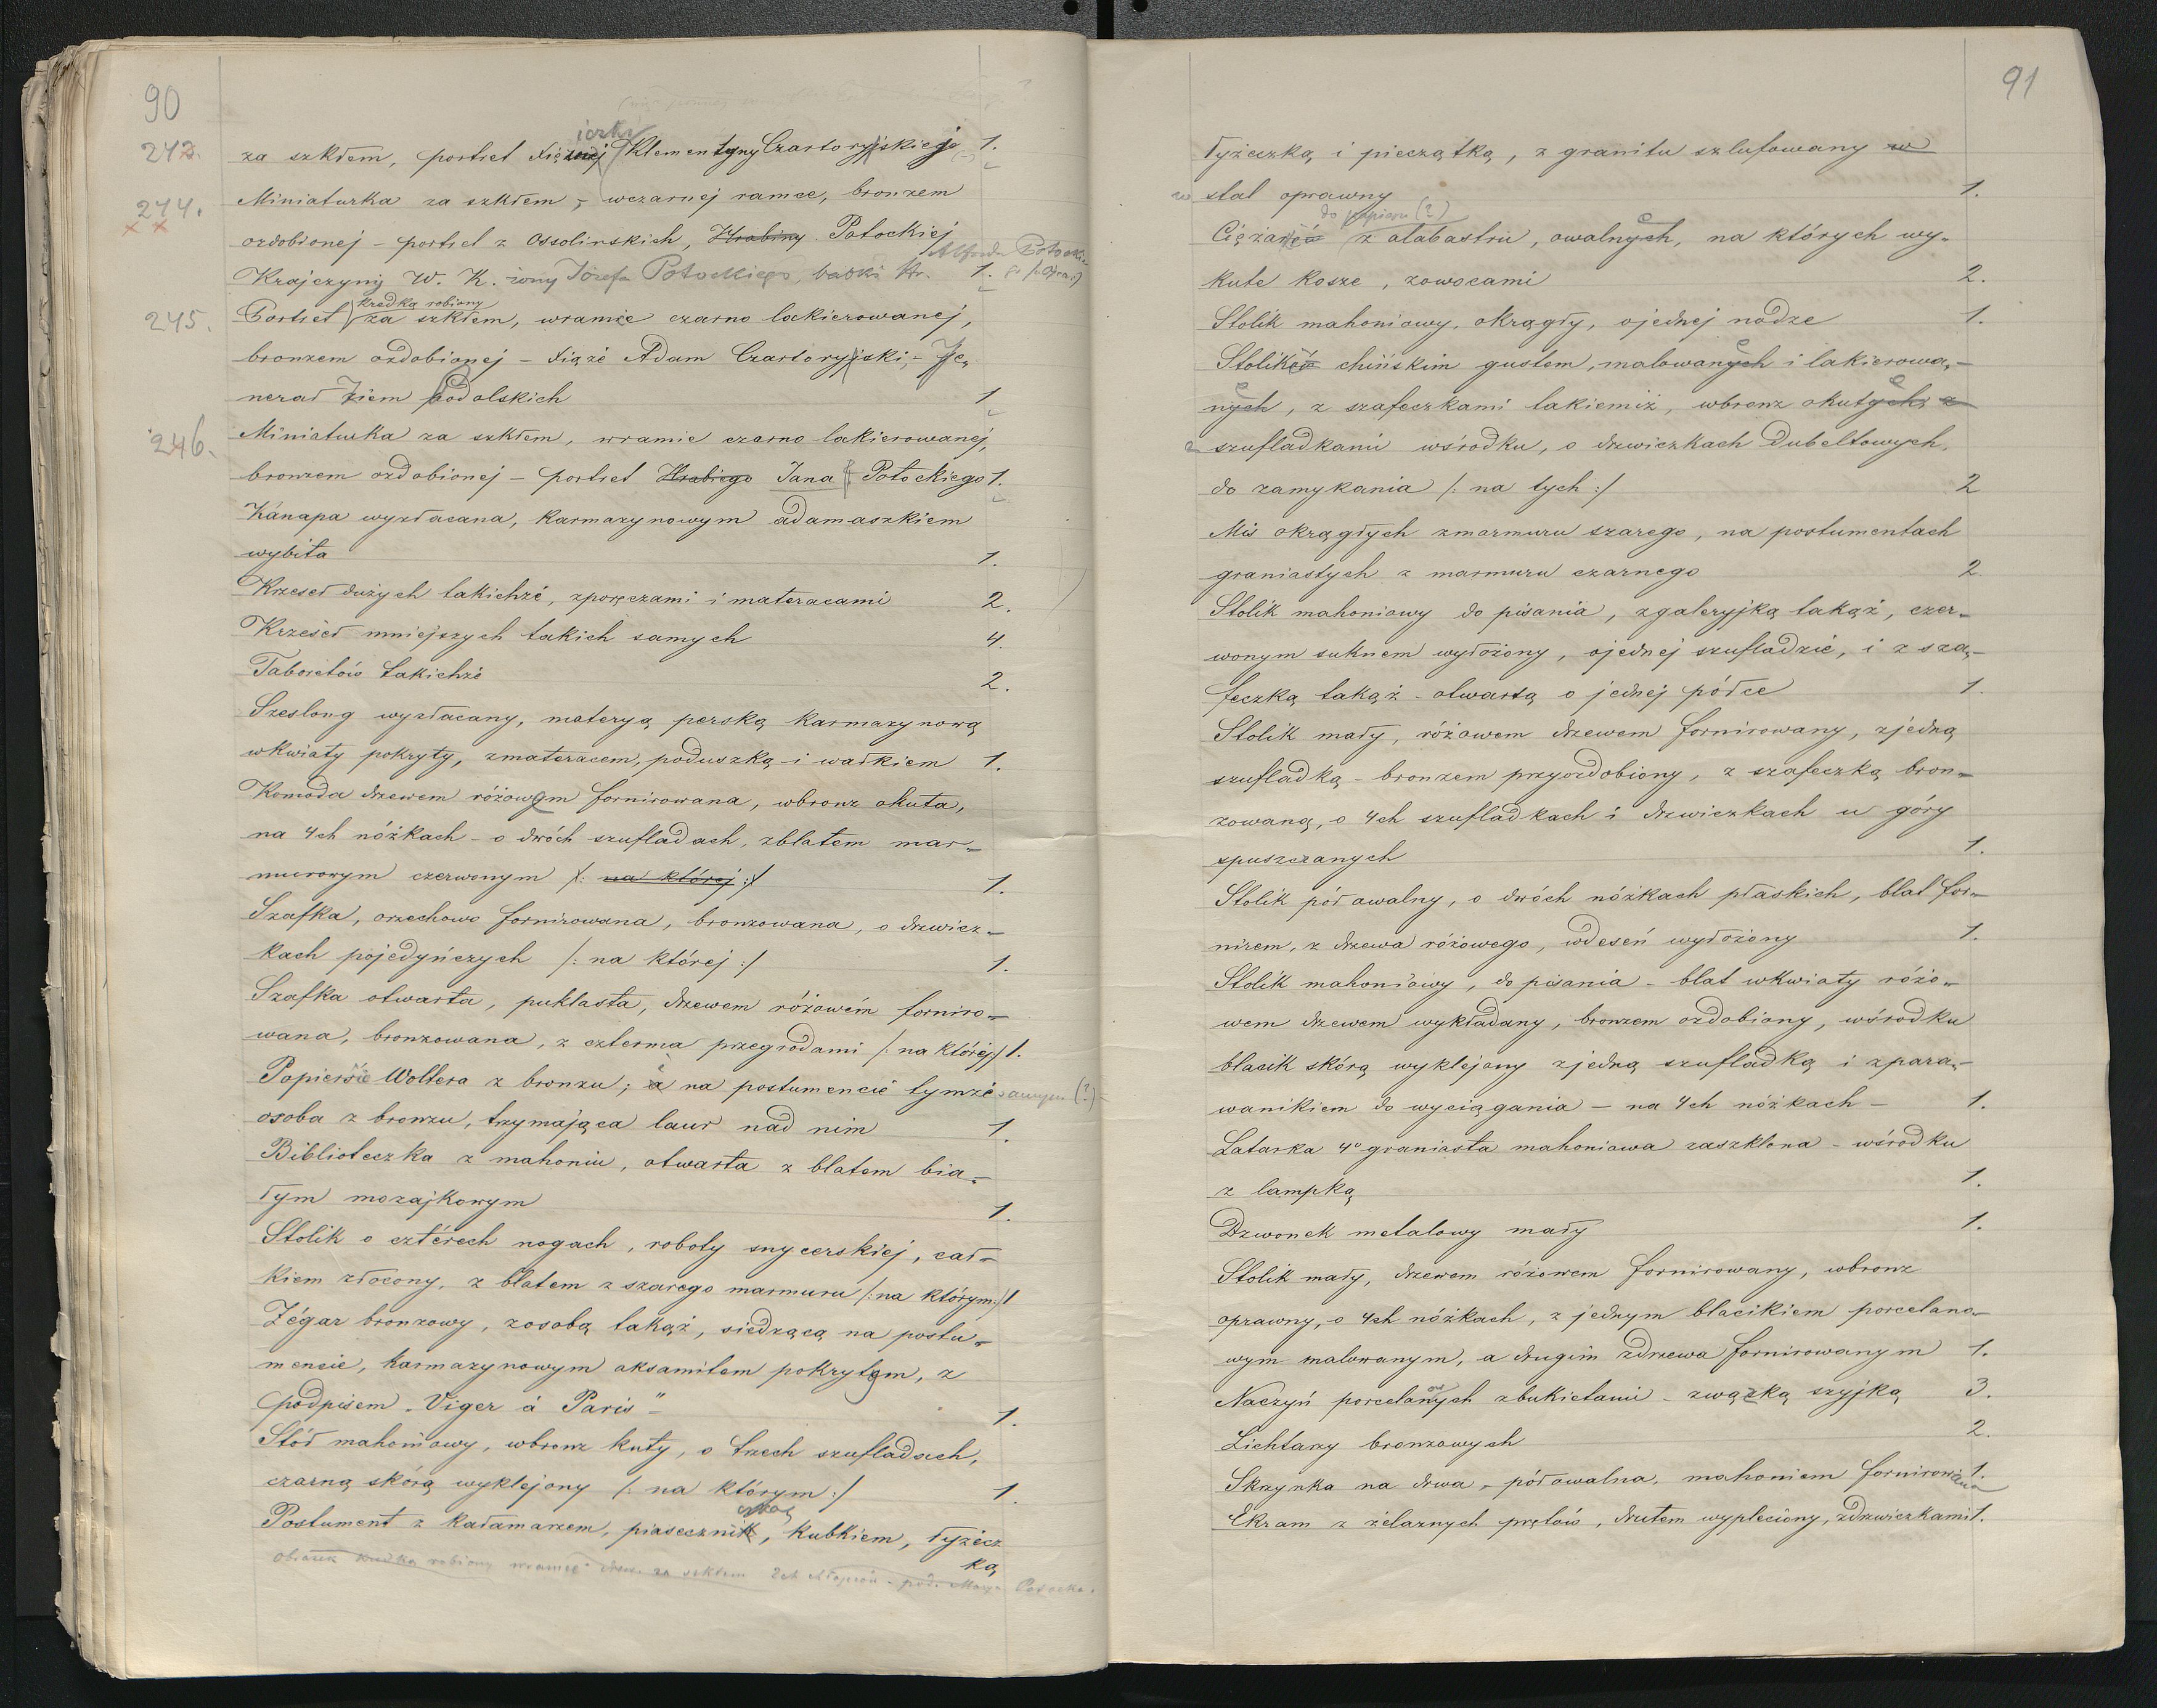 90
243.
iczki
za szkłem, portret Xiężnej Klementyny Czartoryjskiej 1.
244.
Miniaturka za szkłem, wczarnej ramce, bronzem
ozdobionej - portret z Ossolinskich, Hrabiny Potockiej
Alfreda Potockie
Krajczyny W. K. żony Józefa Potockiego, babki Hr. 1.
kredką robiony
245.
Portret za szkłem, wramie czarno lakierowanej,
bronzem ozdobionej - Xiąże Adam Czartoryjski, - Je,
nerał Ziem Podolskich 1
246.
Miniaturka za szkłem, wramie czarno lakierowanej,
bronzem ozdobionej - portret Hrabiego Jana Potockiego 1.
Kánapa wyzłacana, karmazynowym adamaszkiem
wybita 1.
Krzeseł dużych takichże, zporęczami i materacami 2.
Krzeseł mniejszych takich samych 4.
Taboretów takichże 2.
Szeslong wyzłacany, materyą perską karmazynową
wkwiaty pokryty, zmateracem, poduszką i wałkiem 1.
Komoda drzewem różowym fornirowana, wbronz okuta,
na 4ch nóżkach - o dwóch szufladach, zblatem mar-
murowym czerwonym /: na której :/ 1.
Szafka, orzechowo fornirowana, bronzowana, o drzwicz-
kach pojedyńczych /: na której :/ 1.
Szafka otwarta, puklasta, drzewem różowém forniro-
wana, bronzowana, z czterma przegrodami /: na której :/ 1.
Popiersie Woltera z bronzu; a na postumencie tymże samym (?)
osoba z bronzu, trzymająca laur nad nim 1.
Biblioteczka z mahoniu, otwarta z blatem bia-
łym mozajkowym 1.
Stolik o cztérech nogach, roboty snycerskiej, cał-
kiem złocony, z blatem z szarego marmuru /: na którym :/ 1
Zégar bronzowy, zosobą takąż, siedzącą na postu-
mencie, karmazynowym aksamitem pokrytym, z
podpisem „Viger à Paris" 1.
Stół mahoniowy, wbronz kuty, o trzech szufladach,
czarną skórą wyklejony /: na którym :/ 1.
Postument z kałamarzem, piasecznik, kubkiem, łyżecz
ką
Obrazek kredką robiony wramce za szkłem 2ch Potocka.
91
łyżeczką i pieczątką, z granitu szlufowany w
w stal oprawny 1.
do papieru (?)
Ciężarów z alabastru, owalnych, na których wy-
kute kosze, zowocami 2.
Stolik mahoniowy, okrągły, ojednej nodze 1.
Stolików chińskim gustem, malowanych i lakierowa,-
nych, z szafeczkami takiemiż, wbronz okutych, z
z szufladkami wśrodku, o drzwiczkach dubeltowych,
do zamykania /: na tych :/ 2
Mis okrągłych zmarmuru szarego, na postumentach
graniastych z marmuru czarnego 2.
Stolik mahoniowy do pisania, zgaleryjką takąż, czer-
wonym suknem wyłożony, ojednej szufladzie, i z sza,-
feczką takąż - otwartą o jednej półce 1.
Stolik mały, różowem drzewem fornirowany, zjedną
szufladką - bronzem przyozdobiony, z szafeczką bron-
zowaną, o 4ch szufladkach i drzwiczkach u góry
spuszczanych 1.
Stolik pół owalny, o dwóch nóżkach płaskich, blat for-
nirem, z drzewa różowego, wdeseń wyłożony 1.
Stolik mahoniowy, do pisania - blat wkwiaty różo-
wem drzewem wykładany, bronzem ozdobiony, wśrodku
blacik skórą wyklejony zjedną szufladką i zpara,-
wanikiem do wyciągania - na 4ch nóżkach - 1.
Latarka 4o graniasta mahoniowa zaszklona - wśrodku
z lampką 1.
Dzwonek metalowy mały 1.
Stolik mały, drzewem różowem fornirowany, wbronz
oprawny, o 4ch nóżkach, z jednym blacikiem porcelano-
wym malowanym, a drugim zdrzewa fornirowanym 1.
Naczyń porcelanowych zbukietami - zwązką szyjką 3.
Lichtarzy bronzowych 2.
Skrzynka na drwa, półowalna, mahoniem fornirowana 1.
Ekram z żelaznych prętów, drutem wypleciony, zdrzwiczkami 1.